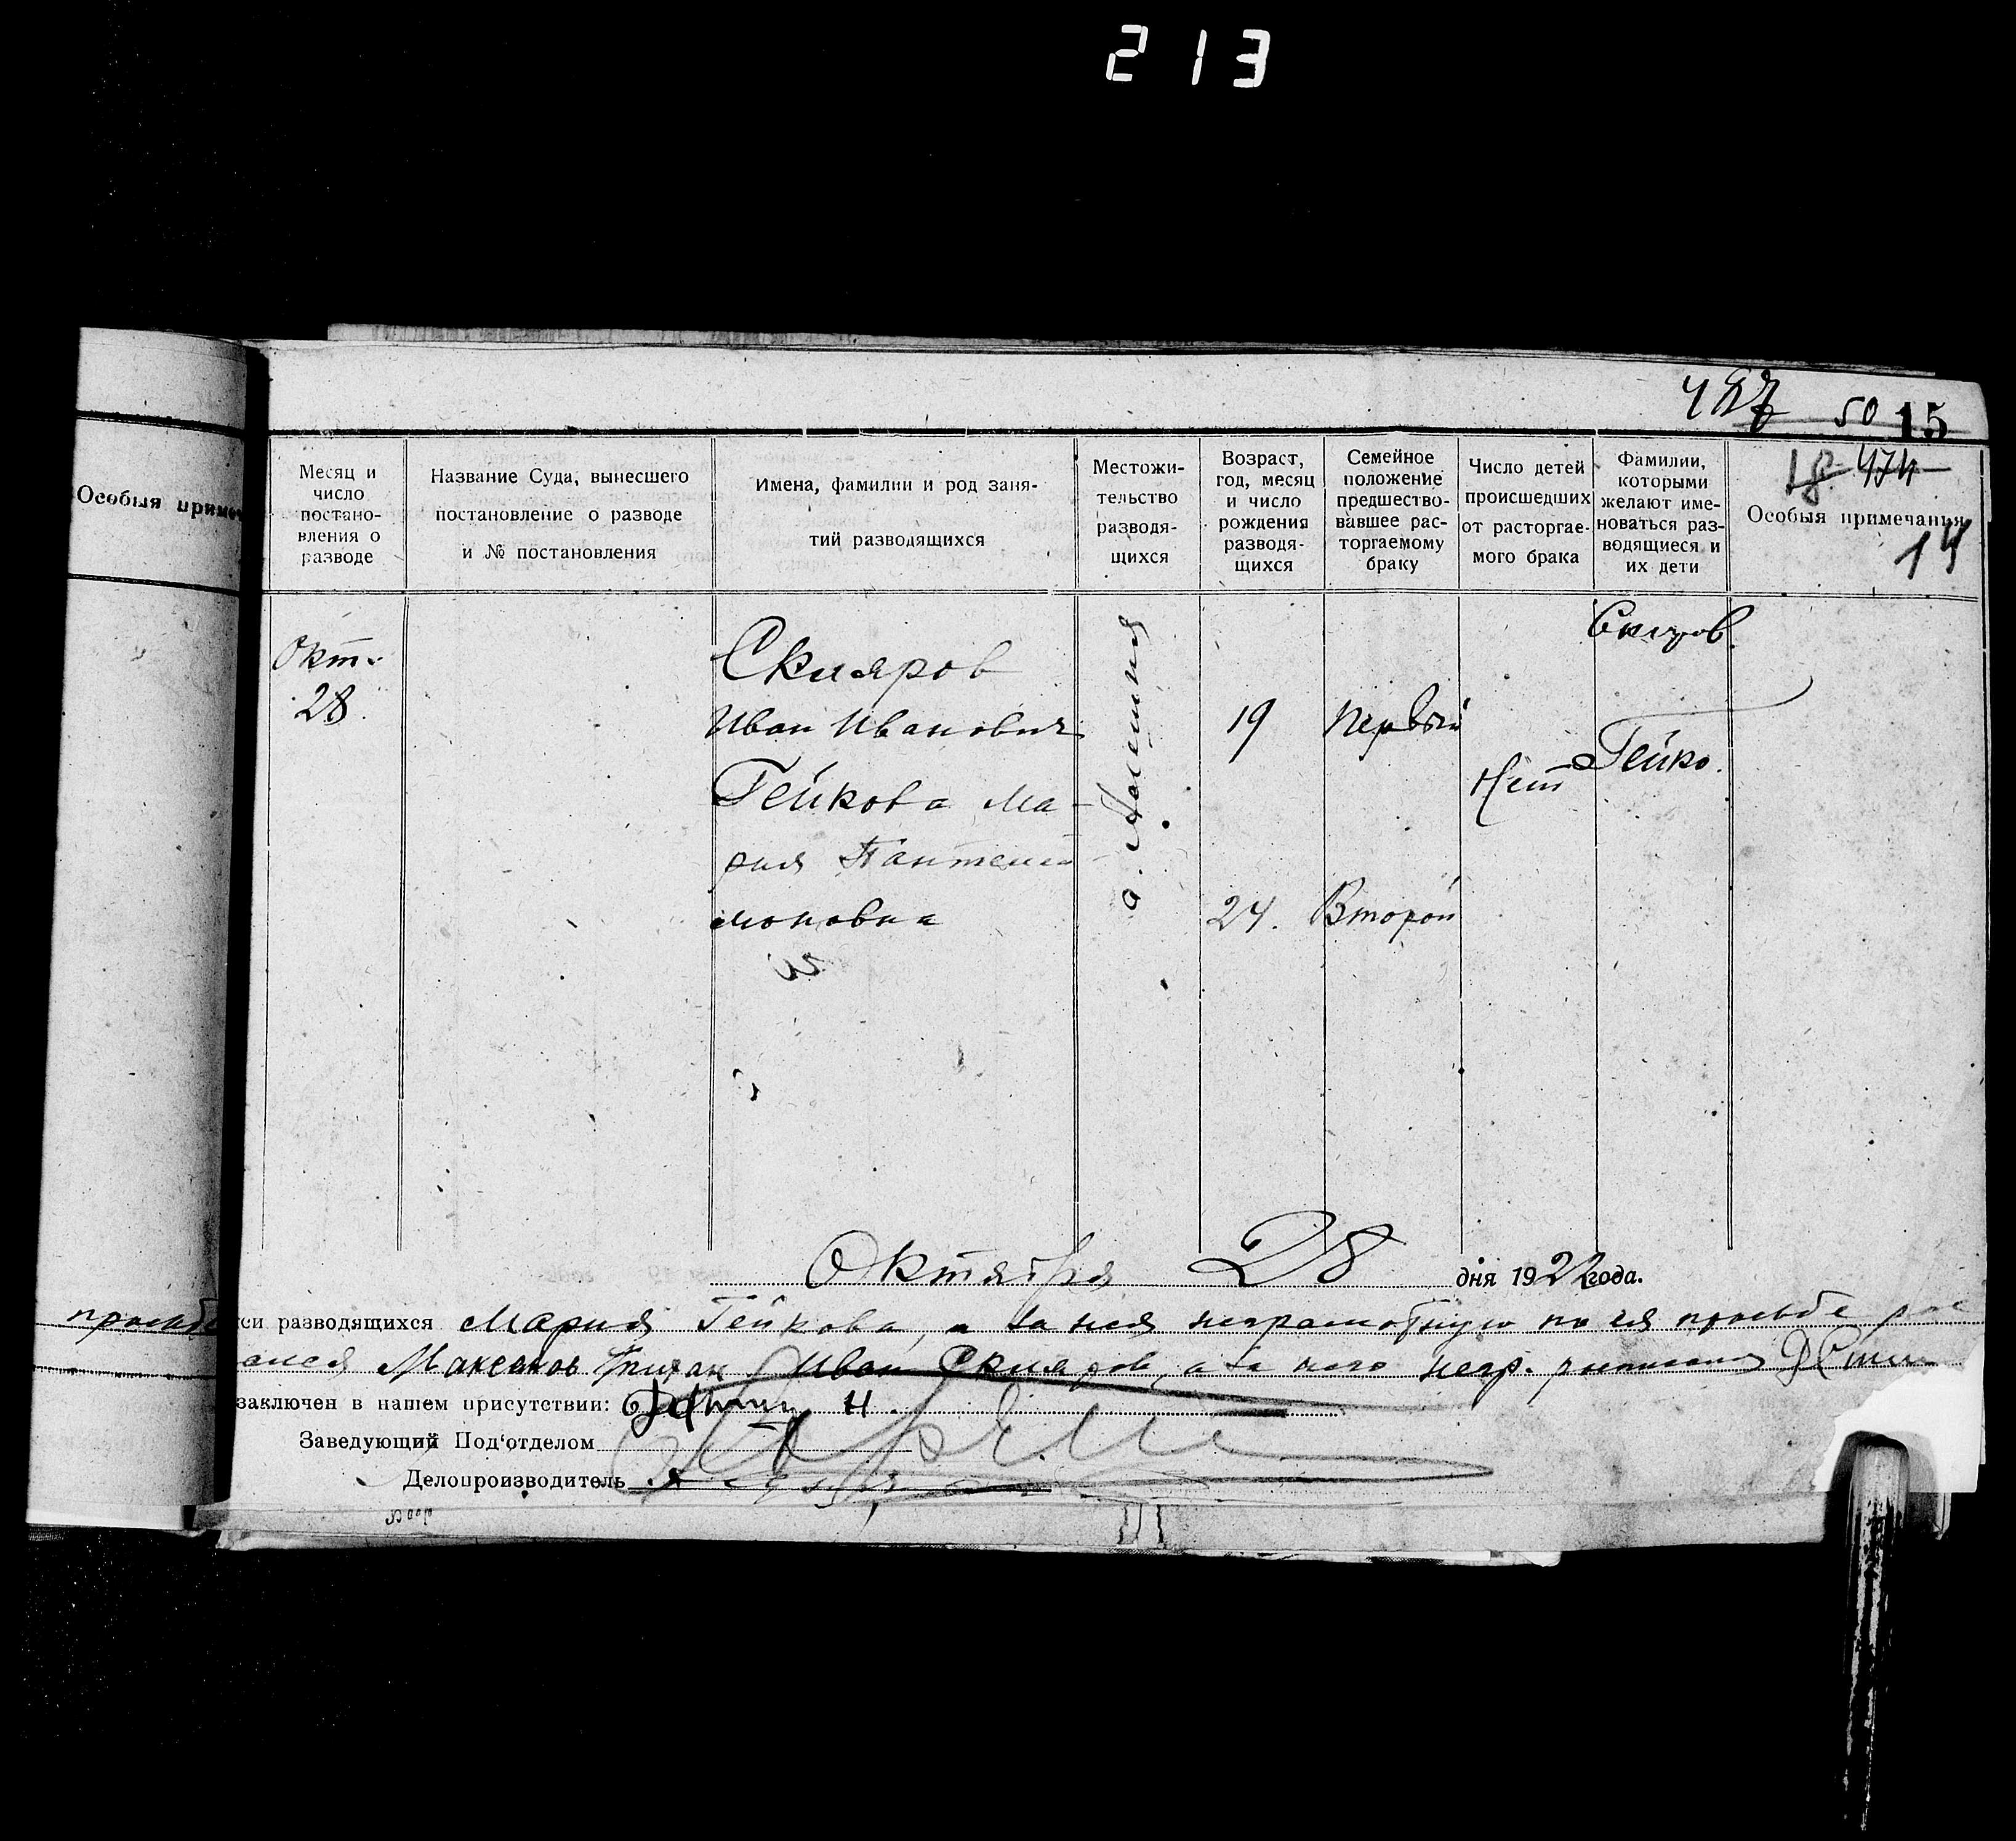 213
50 15
18 474
14
Особыя приме
Месяц и
число
постано-
вления о
разводе
Название Суда, вынесшего
постановление о разводе
и № постановления
Имена, фамилии и род заня-
тий разводящихся
Местожи-
тельство
разводя-
щихся
Возраст,
год, месяц
и число
рождения
разводя-
щихся
Семейное
положение
предшество-
вавшее рас-
торгаемому
браку
Число детей
происшедших
от расторгае-
мого брака
Фамилии,
которыми
желают име-
новаться раз-
водящиеся и
их дети
Особыя примечания
Окт.
28.
Скляров
Иван Иванович
Гейкова Ма-
рия Пантели
моновна
19
24.
Первый
Второй
Нет
Гейко.
Октября 28 дня 1922 года.
си разводящихся Мария Гейкова, а за нея неграмотную по ея просьбе рос
Иван Скляров, а за него негр.
заключен в нашем присутствии:
Заведующий Под'отделом
Делопроизводитель